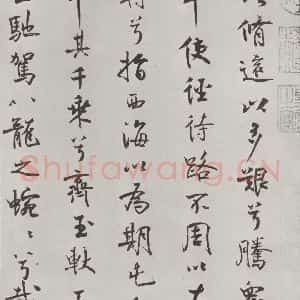 脩遠以多艱兮騰眾
使徑待路不周以
兮指西海以為期屯
其千乘兮齊玉軑
馳駕八龍之蜿〻兮載
Shufawang.CN